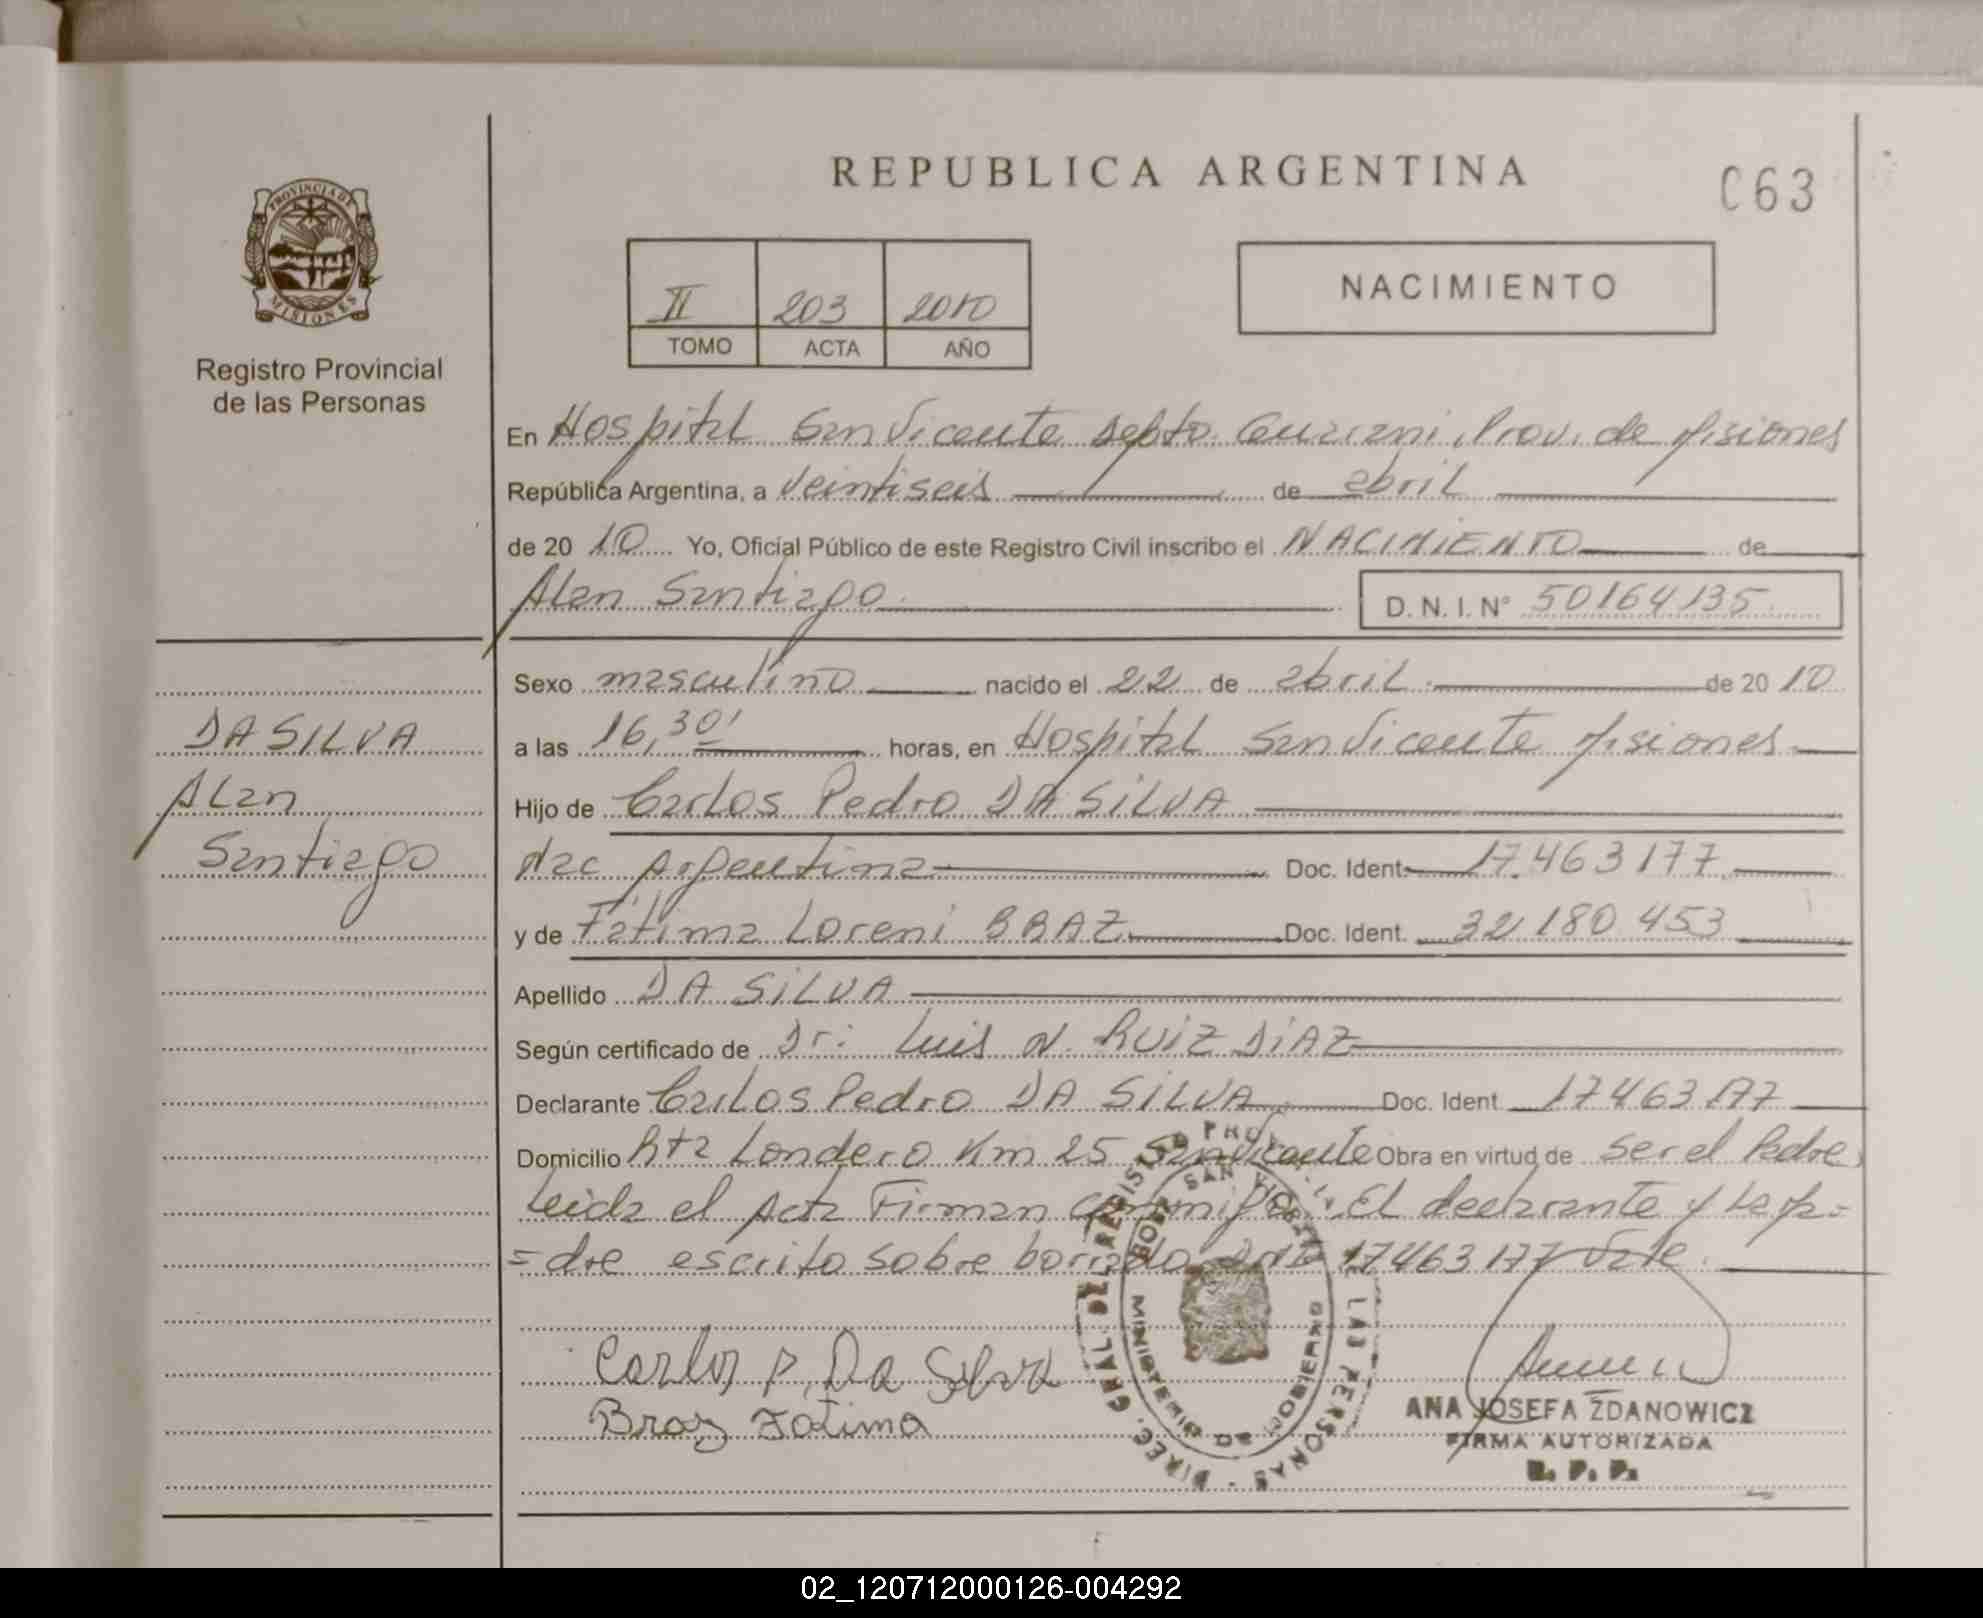 REPUBLICA ARGENTINA
C63
PROVINCIA DE
MISIONES
Registro Provincial
de las Personas
II 203 2010
TOMO ACTA AÑO
NACIMIENTO
En Hospital San Vicente Depto. Guarani, Prov. de Misiones
República Argentina, a veintiseis de abril
de 20 10 Yo, Oficial Público de este Registro Civil inscribo el NACIMIENTO de
Alan Santiago D. N. I. N° 50164135
Sexo masculino nacido el 22 de abril de 20 10
a las 16,30' horas, en Hospital San Vicente Misiones
Hijo de Carlos Pedro DA SILVA
Nac Argentina Doc. Ident. 17.463177
y de Fátima Loreni BRAZ Doc. Ident. 32 180 453
Apellido DA SILVA
Según certificado de Dr: Luis N. RUIZ DIAZ
Declarante Carlos Pedro DA SILVA Doc. Ident 17463177
Domicilio Rta Londero Km 25 San Vicente Obra en virtud de ser el Padre
Leida el Acta Firman conmigo. El declarante y la ma=
=dre escrito sobre borrado 17463177 Vale.
DA SILVA
Alan
Santiago
Carlos P. Da Silva
Braz Fatima
DIREC. GRAL DEL REGISTRO PROV. DE LAS PERSONAS
SAN VICENTE
MINISTERIO DE GOBIERNO
ANA JOSEFA ZDANOWICZ
FIRMA AUTORIZADA
R. P. P.
02_120712000126-004292